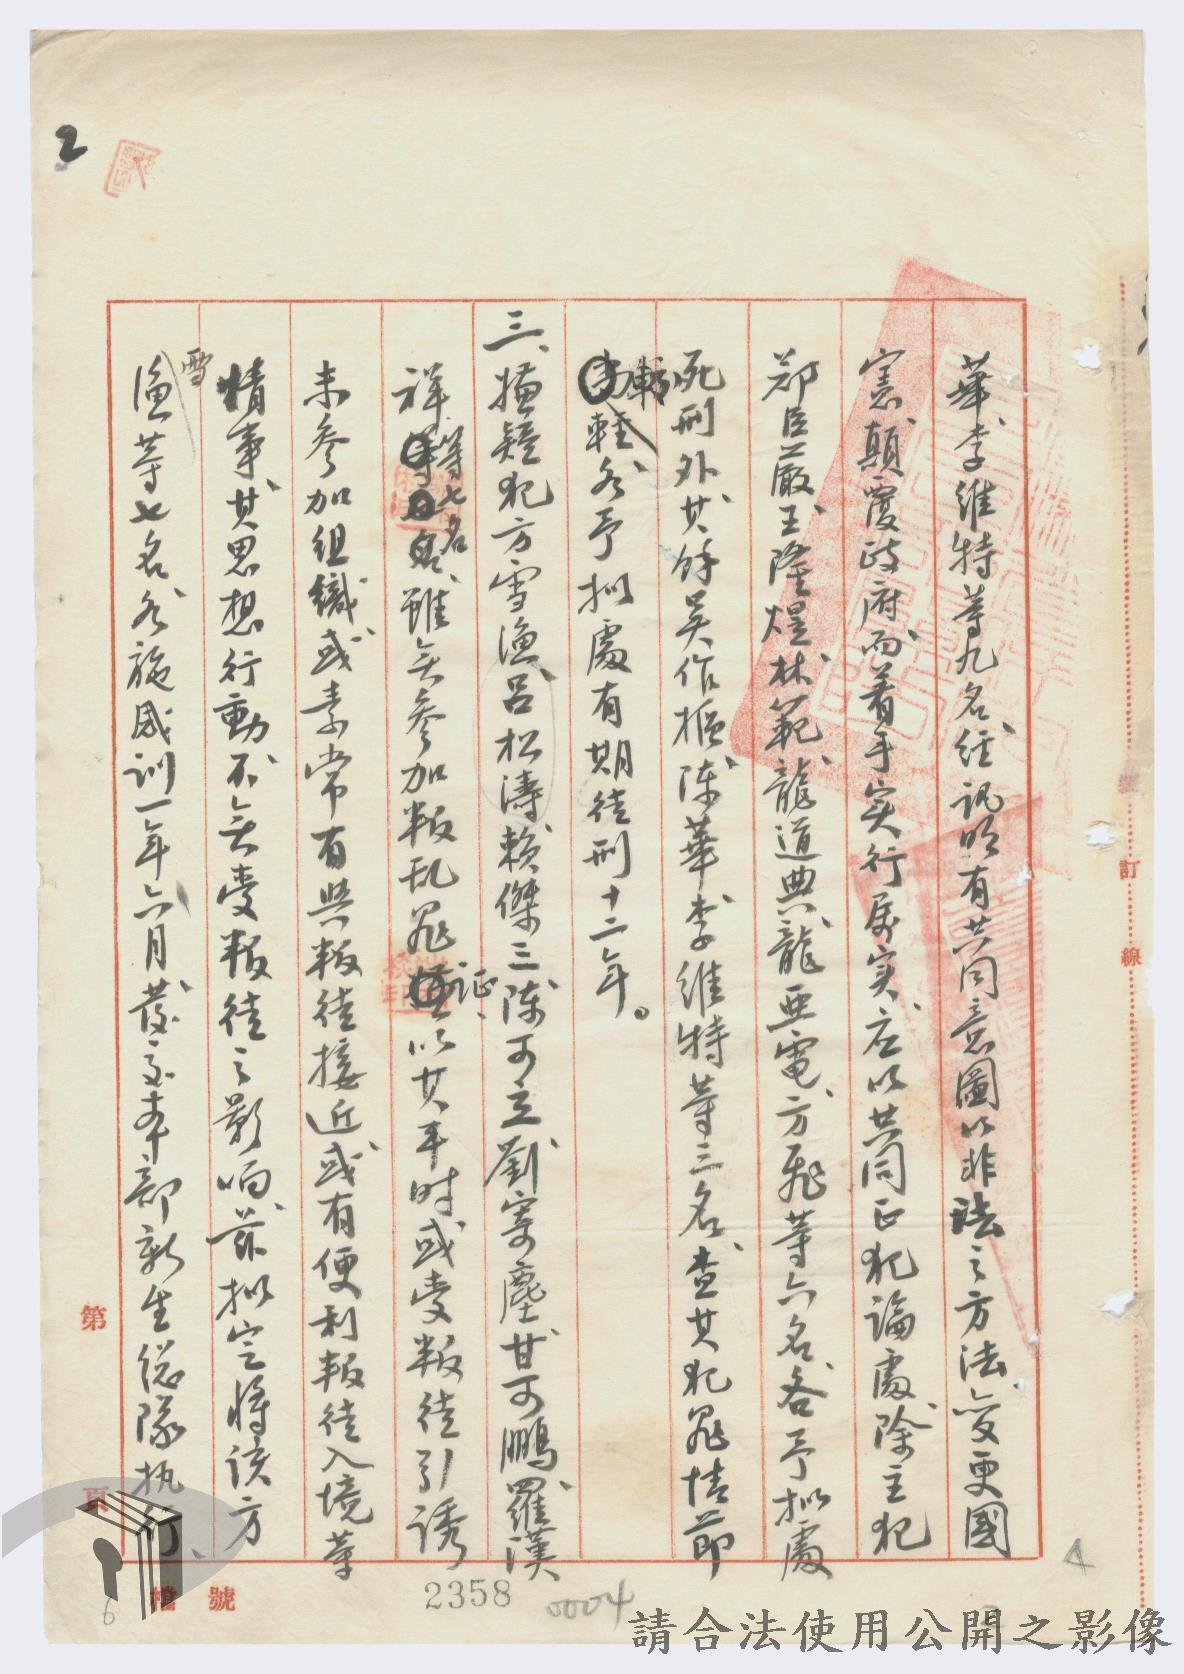 2
華、李維特等九名、經訊明有共同意圖以非法之方法變更國
憲、顛覆政府、而着手实行屬实、应以共同正犯論處、除主犯
鄭臣嚴、王隆煜、林範、龍道典、龍亞電、方飛等六名、各予拟處
死刑外、其餘吳作樞、陳華、李維特等三名、查其犯罪情節
較輕、各予拟處有期徒刑十二年。
三、嫌疑犯方雪漁、呂松濤、賴傑三、陳可立、劉寄塵、甘可鵬、羅漢
祥等七名、雖无參加叛乱罪証、以其平时或受叛徒引誘
未參加組織、或素常有與叛徒接近、或有便利叛徒入境等
情事、其思想行動、不无受叛徒之影响、茲拟定將該方
雪漁等七名、各施感训一年六月、發交本部新生总隊执行、
訂
線
第
頁
檔 號
2358
0004
4
6
請合法使用公開之影像